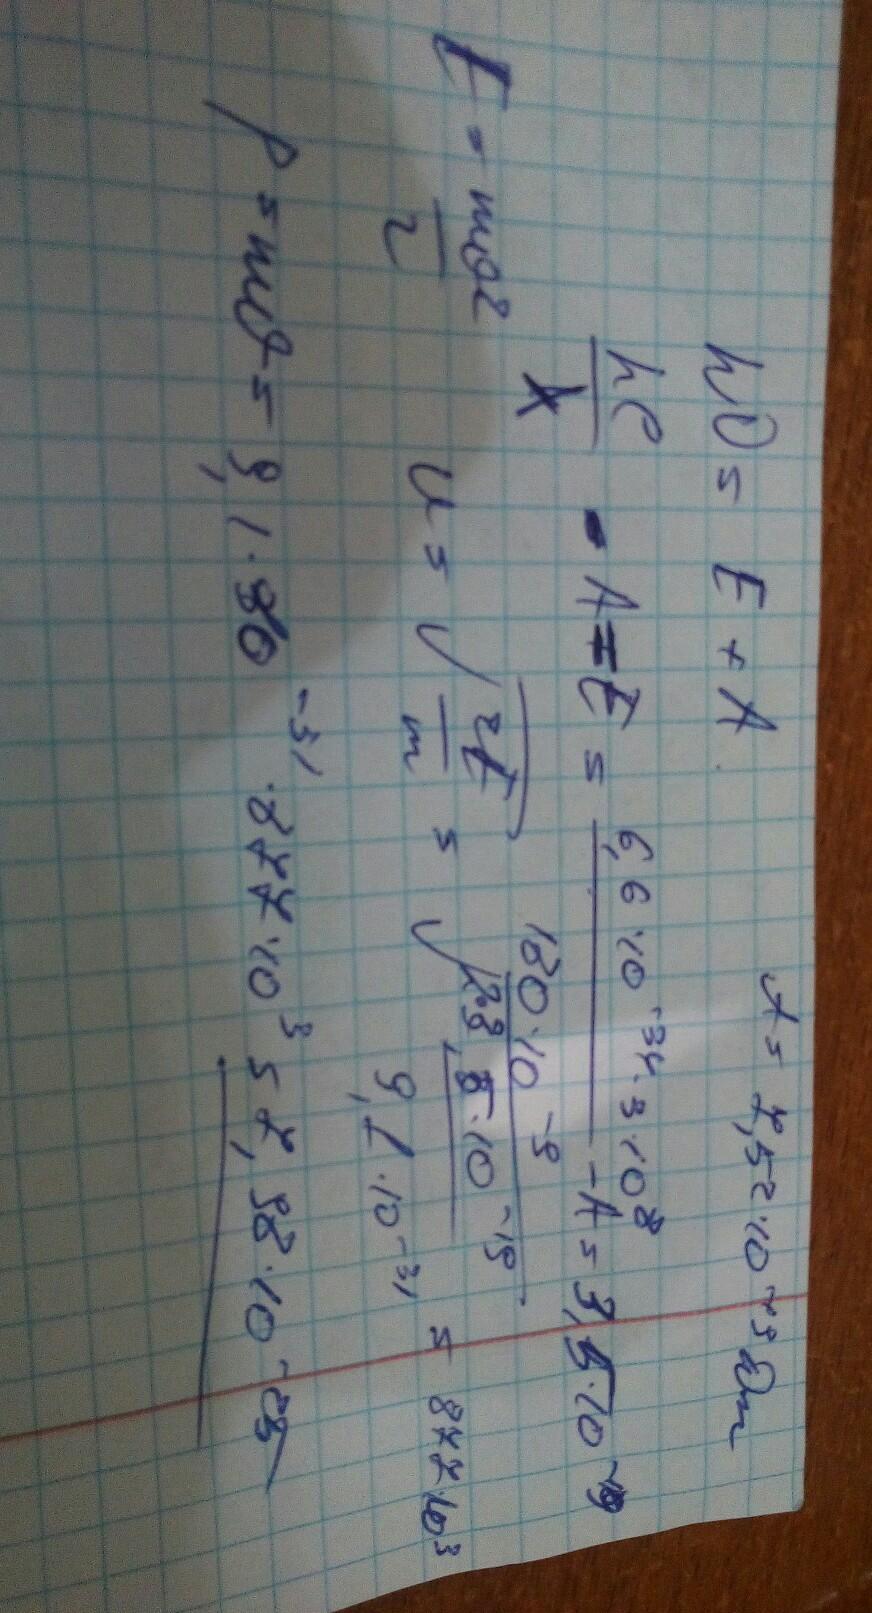 hν = E + A
A = 7,52·10⁻¹⁹ Дж
hc/λ - A = E = 6,6·10⁻³⁴·3·10⁸/180·10⁻⁹ - A = 3,5·10⁻¹⁹
E = mv²/2
v = √2E/m = √2·3,5·10⁻¹⁹/9,1·10⁻³¹ = 877·10³
p = mv = 9,1·10⁻³¹·877·10³ = 7,98·10⁻²⁵